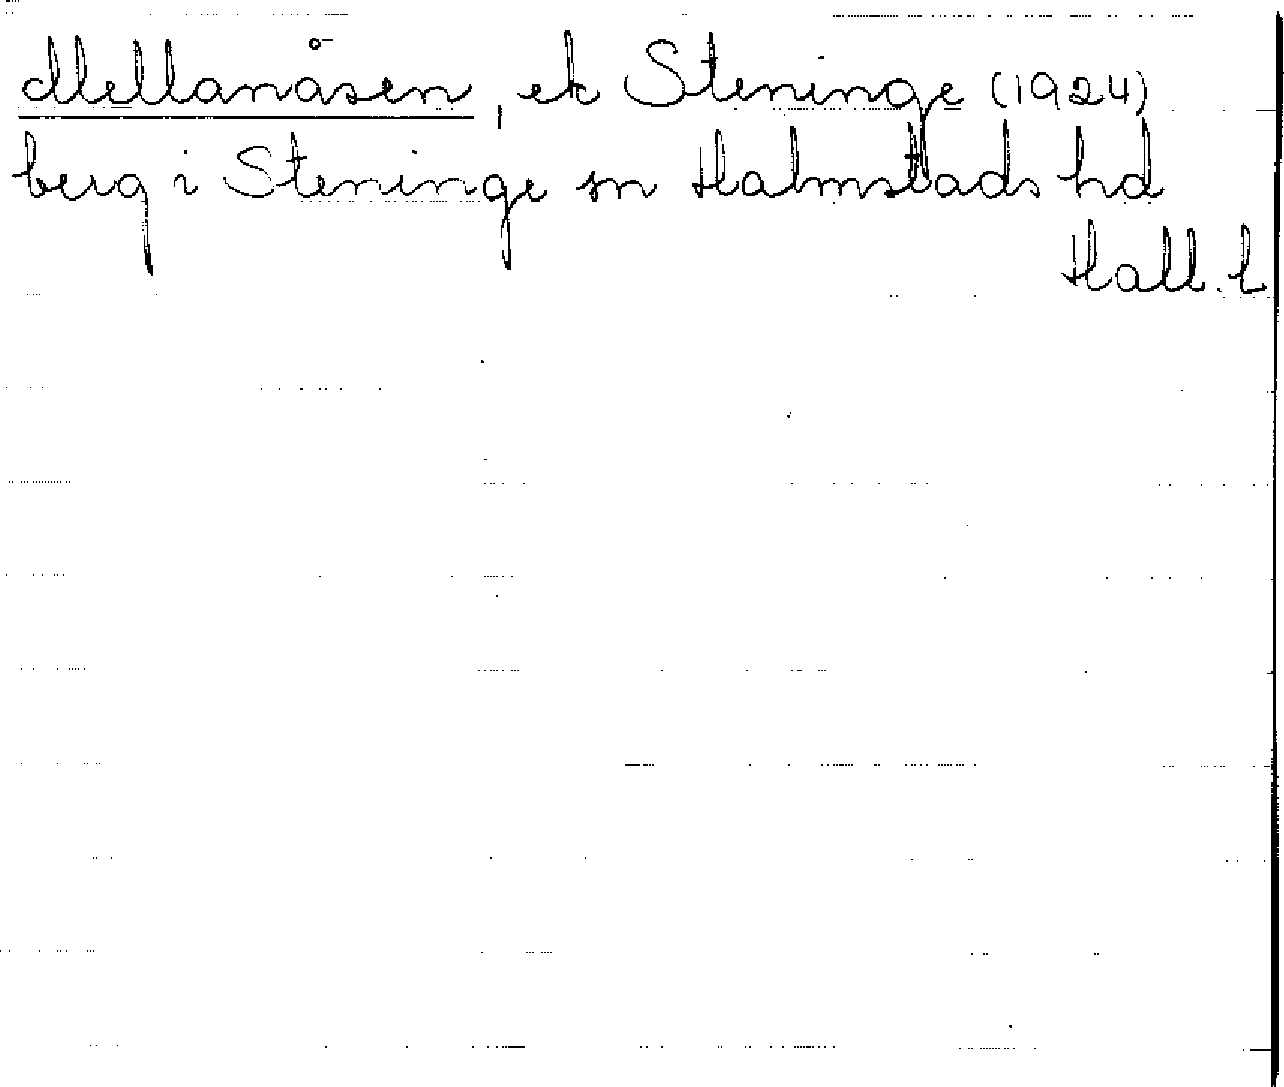 Mellanåsen, ek Steninge (1924)
berg i Steninge sn Halmstads hd
Hall. l